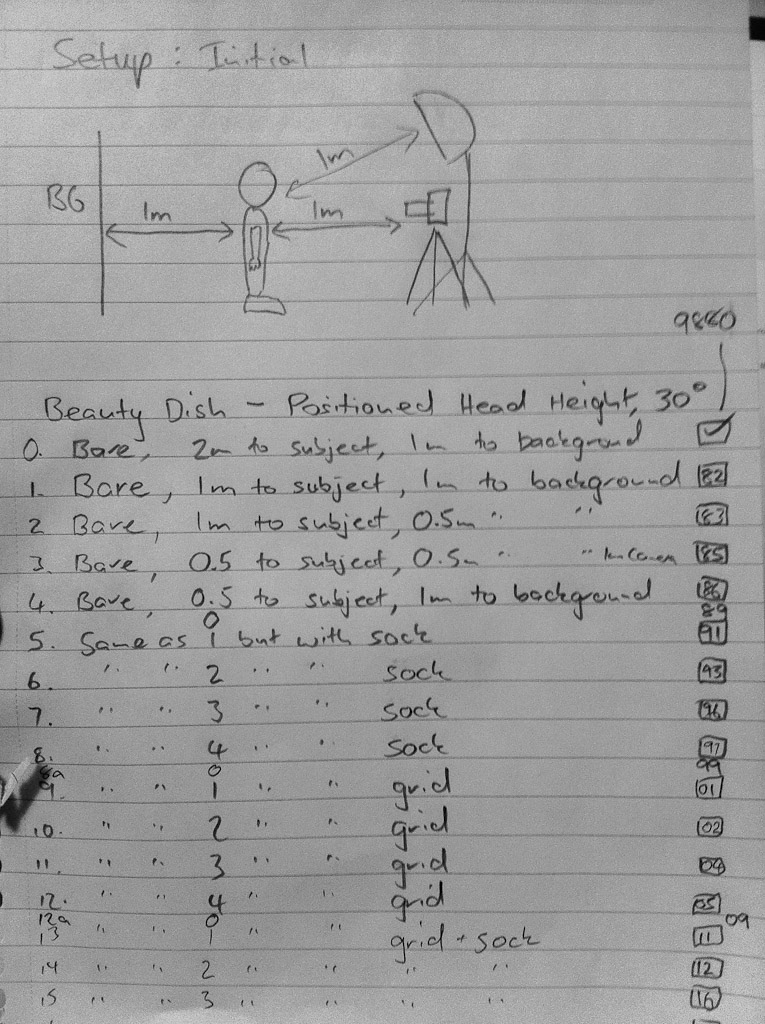 Setup : Initial
1m
BG
1m
1m
9880
Beauty Dish - Positioned Head Height, 30°
0. Bare, 2m to subject, 1m to background
1. Bare, 1m to subject, 1m to background 82
2 Bare, 1m to subject, 0.5m " " 83
3. Bare, 0.5 to subject, 0.5m " " 85
4. Bare, 0.5 to subject, 1m to background 86
0 89
5. Same as 1 but with sock 91
6. " " 2 " " sock 93
7. " " 3 " " sock 96
8. " " 4 " " sock 97
8a 0 99
9. " " 1 " " grid 01
10. " " 2 " " grid 02
11. " " 3 " " grid 04
12. " " 4 " " grid 05
12a 0 09
13 " " 1 " " grid + sock 11
14 " " 2 " " " " 12
15 " " 3 " " " " 16